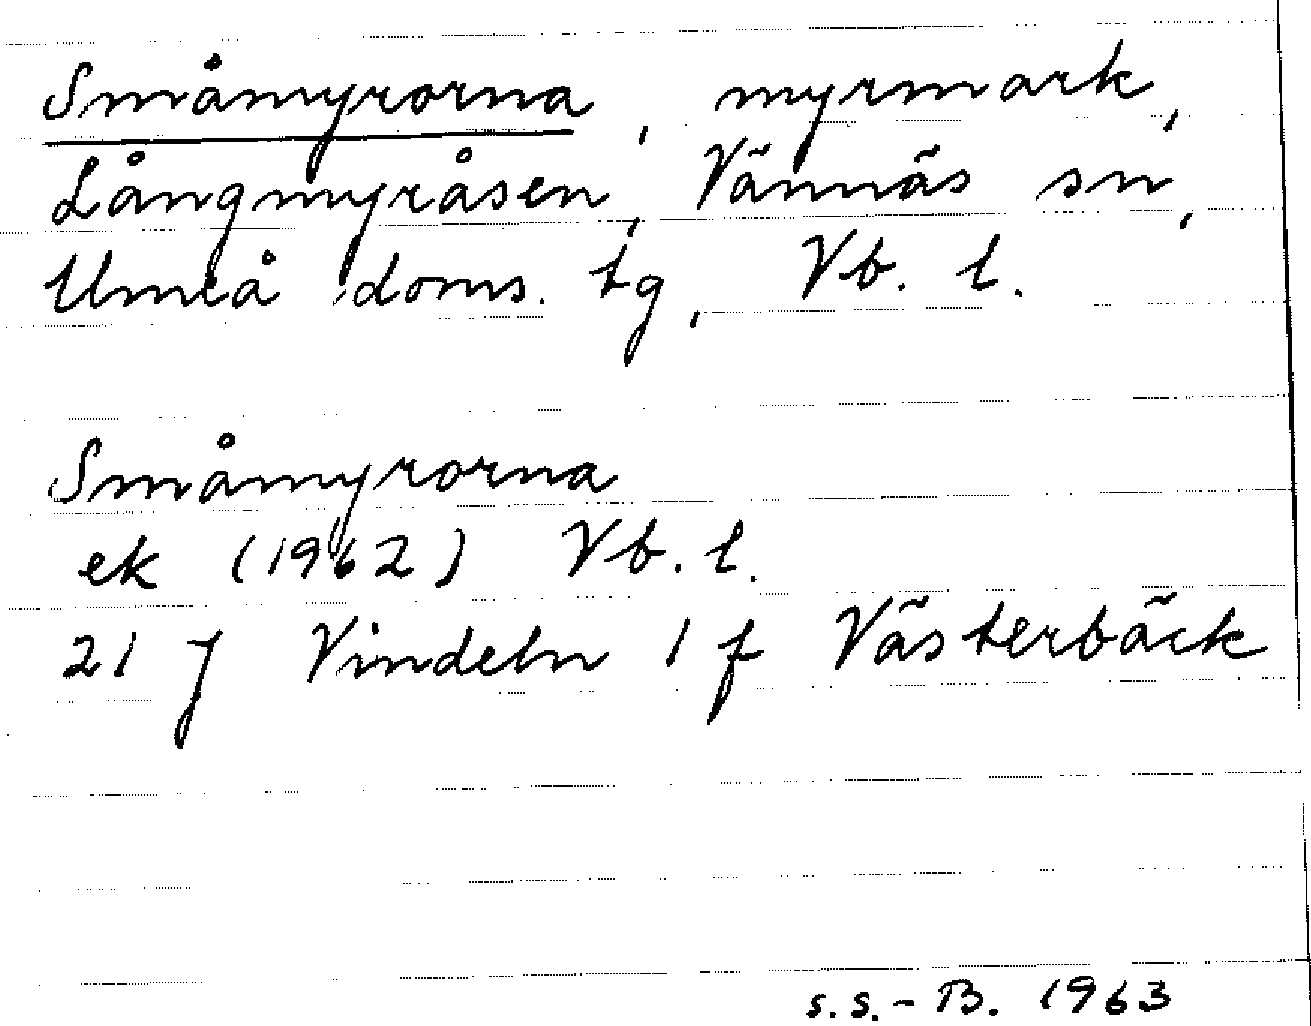 Småmyrorna, myrmark,
Långmyråsen, Vännäs sn,
Umeå doms. tg, Vb. l.
Småmyrorna
ek (1962) Vb. l.
21 J Vindeln 1 f Västerbäck
s.s.-B. 1963